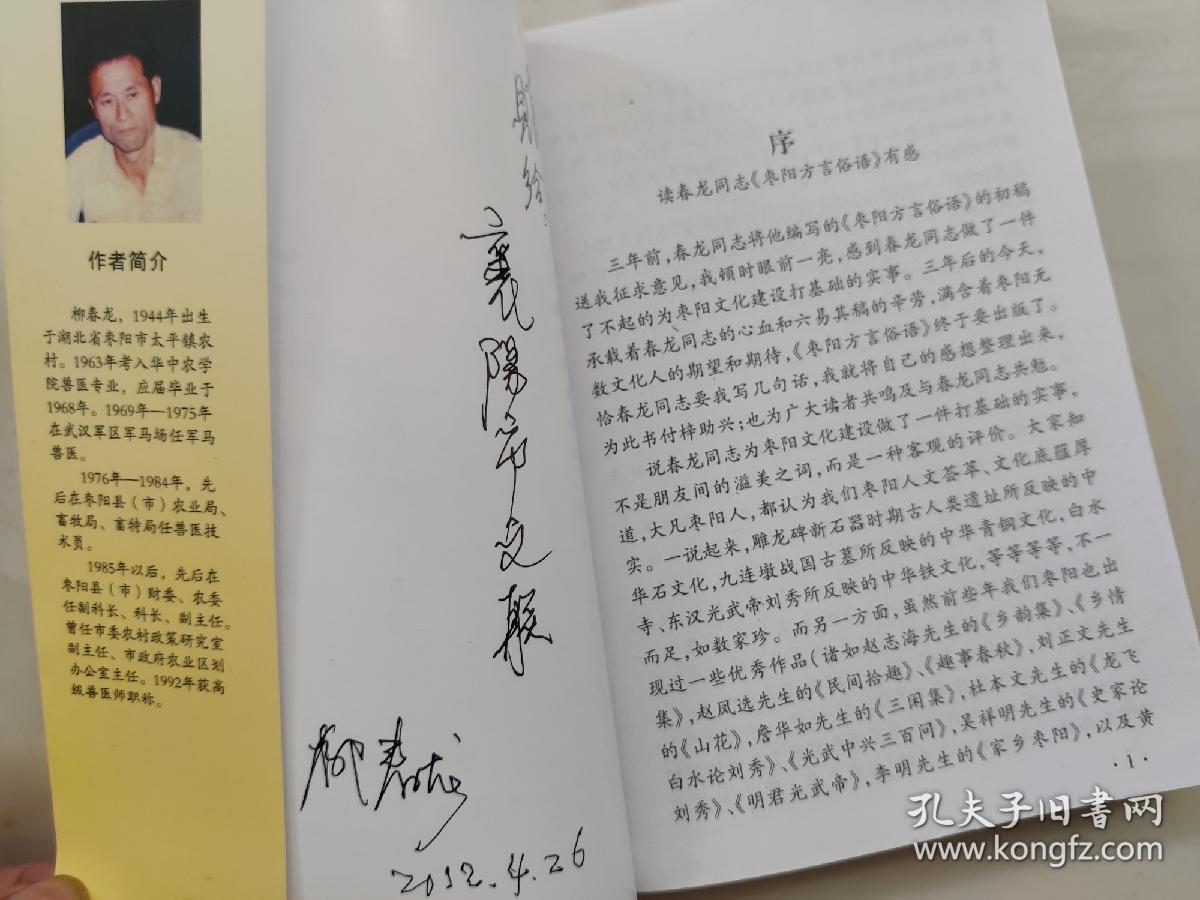 作者简介
柳春龙，1944年出生
于湖北省枣阳市太平镇农
村。1963年考入华中农学
院兽医专业，应届毕业于
1968年。1969年—1975年
在武汉军区军马场任军马
兽医。
1976年—1984年，先
后在枣阳县（市）农业局、
畜牧局、畜特局任兽医技
术员。
1985年以后，先后在
枣阳县（市）财委、农委
任副科长、科长、副主任。
曾任市委农村政策研究室
副主任、市政府农业区划
办公室主任。1992年获高
级兽医师职称。
赠给：
襄阳市文联
柳春龙
2012.4.26
序
读春龙同志《枣阳方言俗语》有感
三年前，春龙同志将他编写的《枣阳方言俗语》的初稿
送我征求意见，我顿时眼前一亮，感到春龙同志做了一件
了不起的为枣阳文化建设打基础的实事。三年后的今天，
承载着春龙同志的心血和六易其稿的辛劳，满含着枣阳无
数文化人的期望和期待，《枣阳方言俗语》终于要出版了。
恰春龙同志要我写几句话，我就将自己的感想整理出来，
为此书付梓助兴；也为广大读者共鸣及与春龙同志共勉。
说春龙同志为枣阳文化建设做了一件打基础的实事，
不是朋友间的溢美之词，而是一种客观的评价。大家知
道，大凡枣阳人，都认为我们枣阳人文荟萃、文化底蕴厚
实。一说起来，雕龙碑新石器时期古人类遗址所反映的中
华石文化，九连墩战国古墓所反映的中华青铜文化，白水
寺、东汉光武帝刘秀所反映的中华铁文化，等等等等，不一
而足，如数家珍。而另一方面，虽然前些年我们枣阳也出
现过一些优秀作品（诸如赵志海先生的《乡韵集》、《乡情
集》，赵凤选先生的《民间拾趣》、《趣事春秋》，刘正文先生
的《山花》，詹华如先生的《三闲集》，杜本文先生的《龙飞
白水论刘秀》、《光武中兴三百问》，吴祥明先生的《史家论
刘秀》、《明君光武帝》，李明先生的《家乡枣阳》，以及黄
·1·
孔夫子旧书网
www.kongfz.com